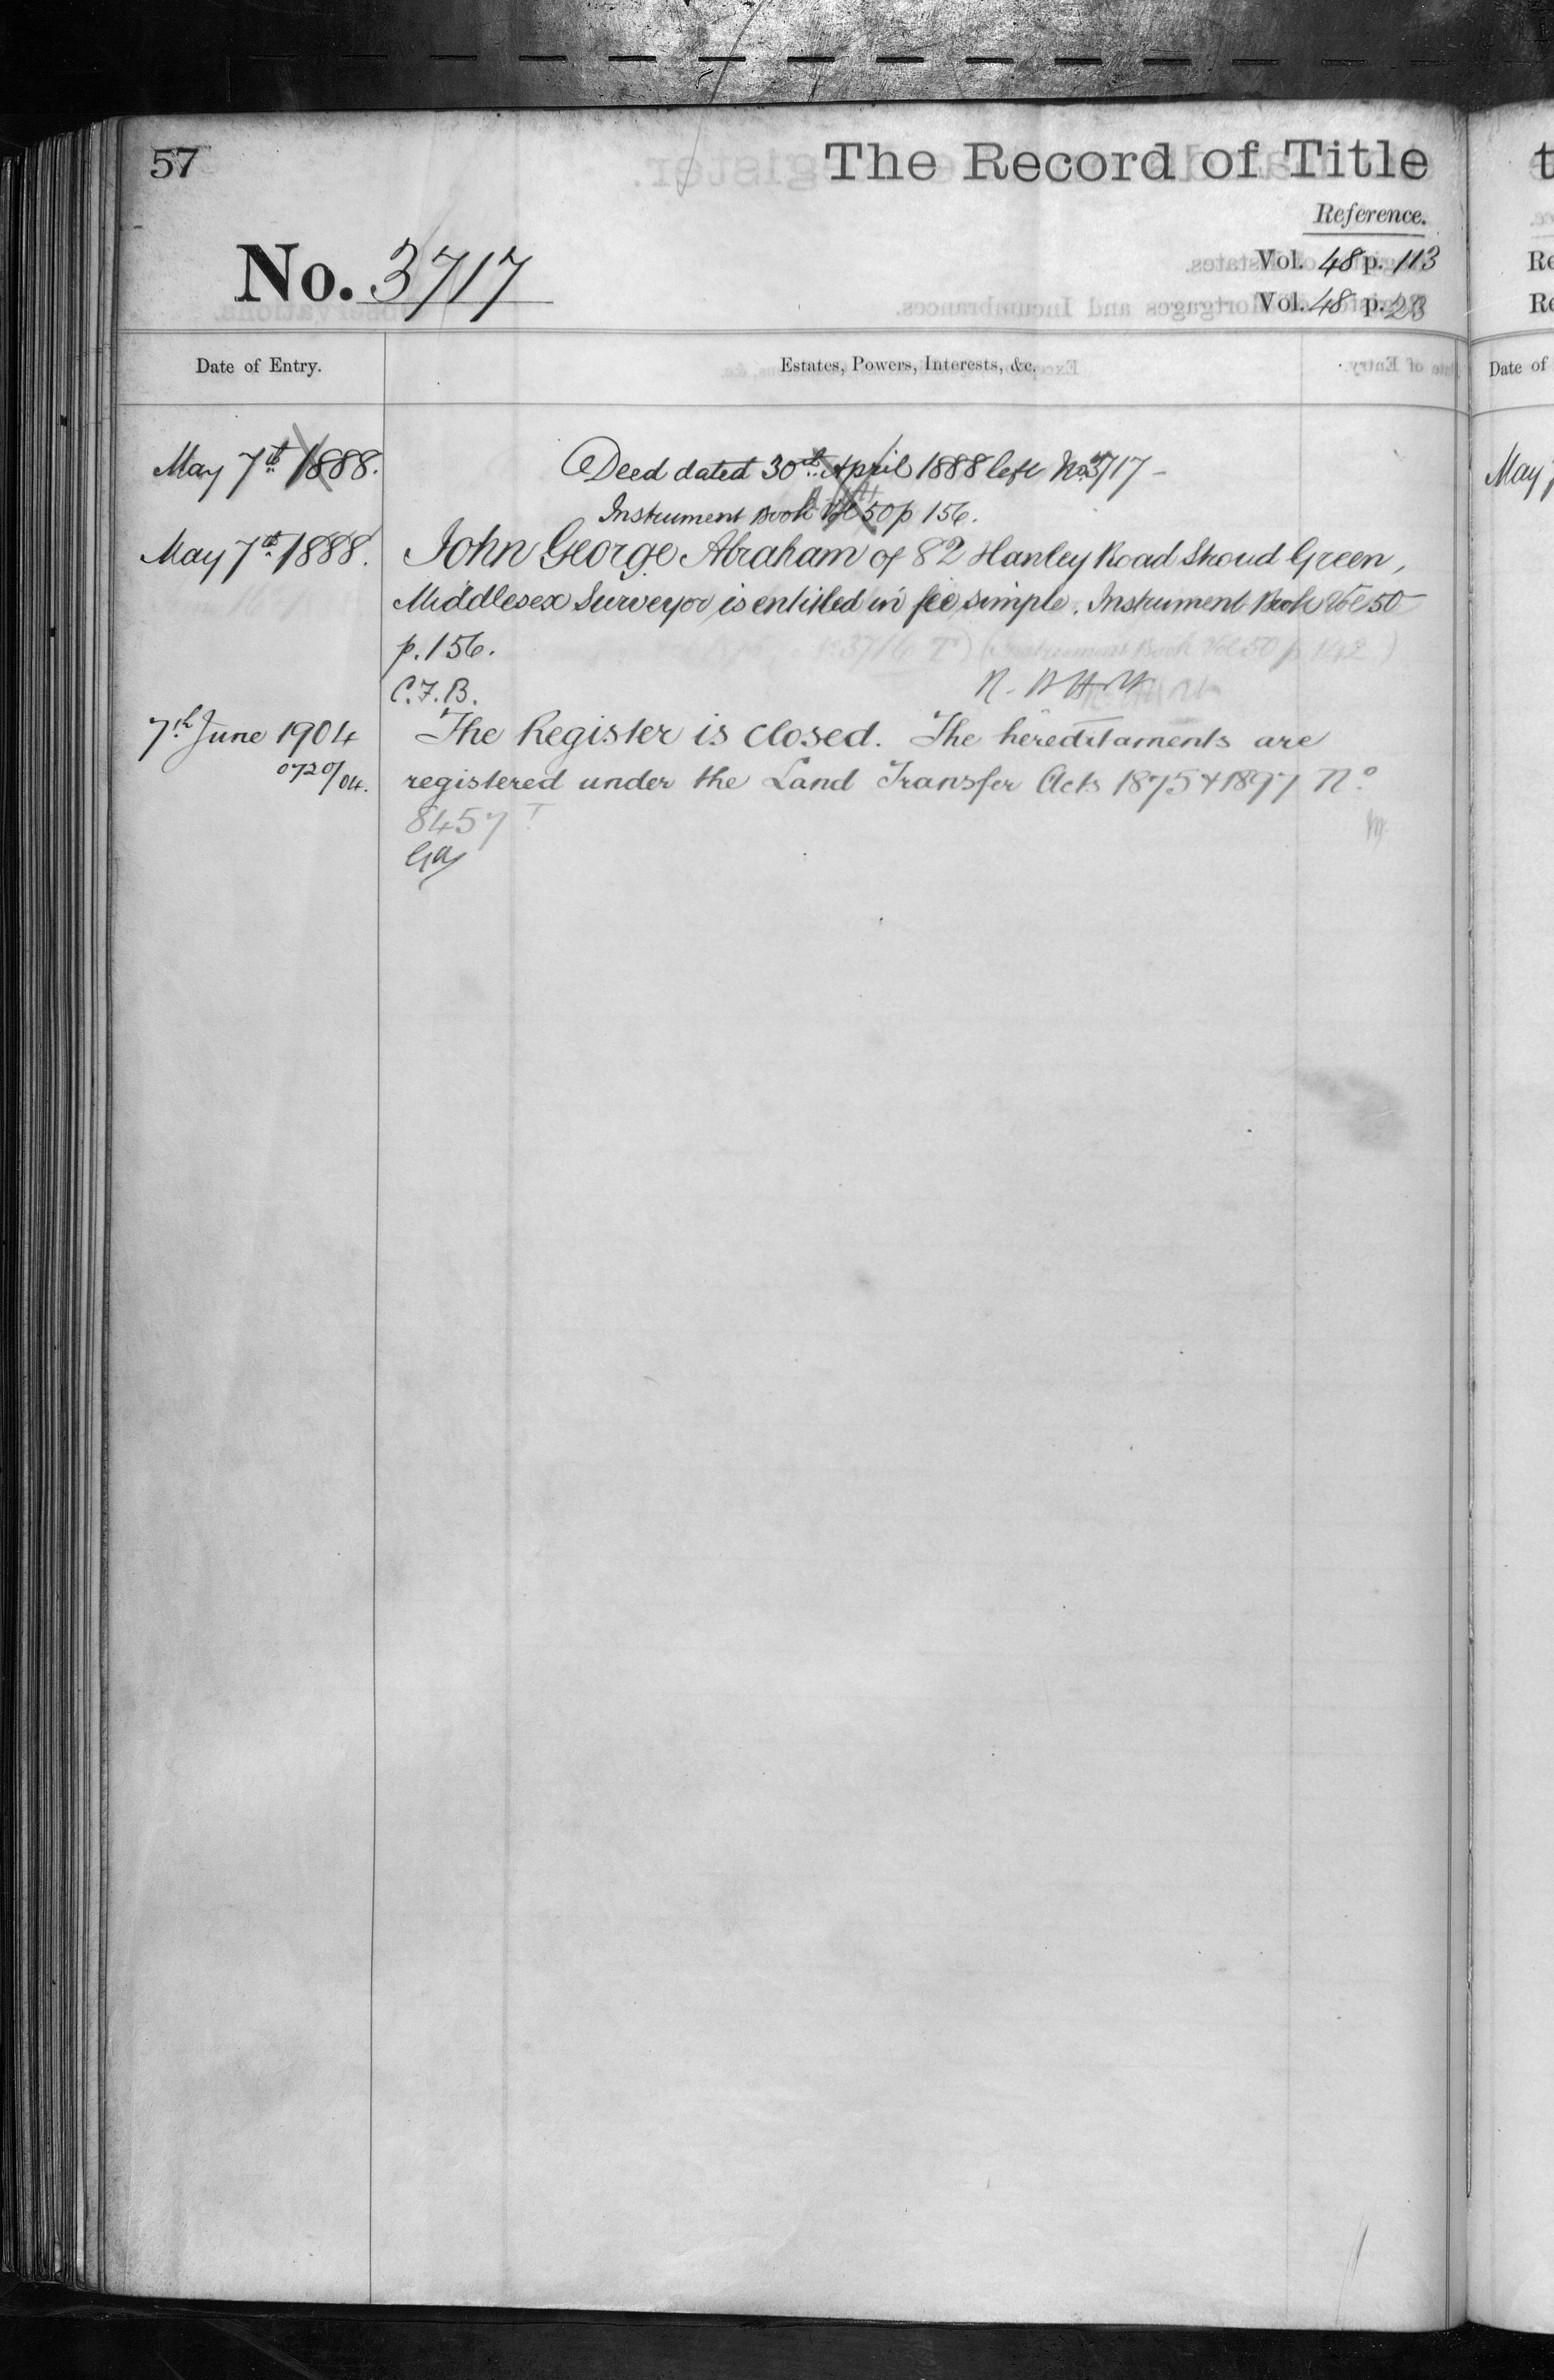 57
The Record of Title
Reference.
No. 3717
Vol. 48 p. 113
Vol. 48 p. 28
Date of Entry.
Estates, Powers, Interests, &c.
May 7th 1888.
Deed dated 30th April 1888 left No. 3717 -
Instrument Book Vol 50 p 156.
May 7th 1888.
John George Abraham of 82 Hanley Road Stroud Green,
Middlesex Surveyor is entitled in fee simple. Instrument Book Vol 50
p. 156.
C.F.B.
7th June 1904
The Register is closed. The hereditaments are
0720/04.
registered under the Land Transfer Acts 1875 & 1897 No
8457
t
Re
Re
Date of
May 7